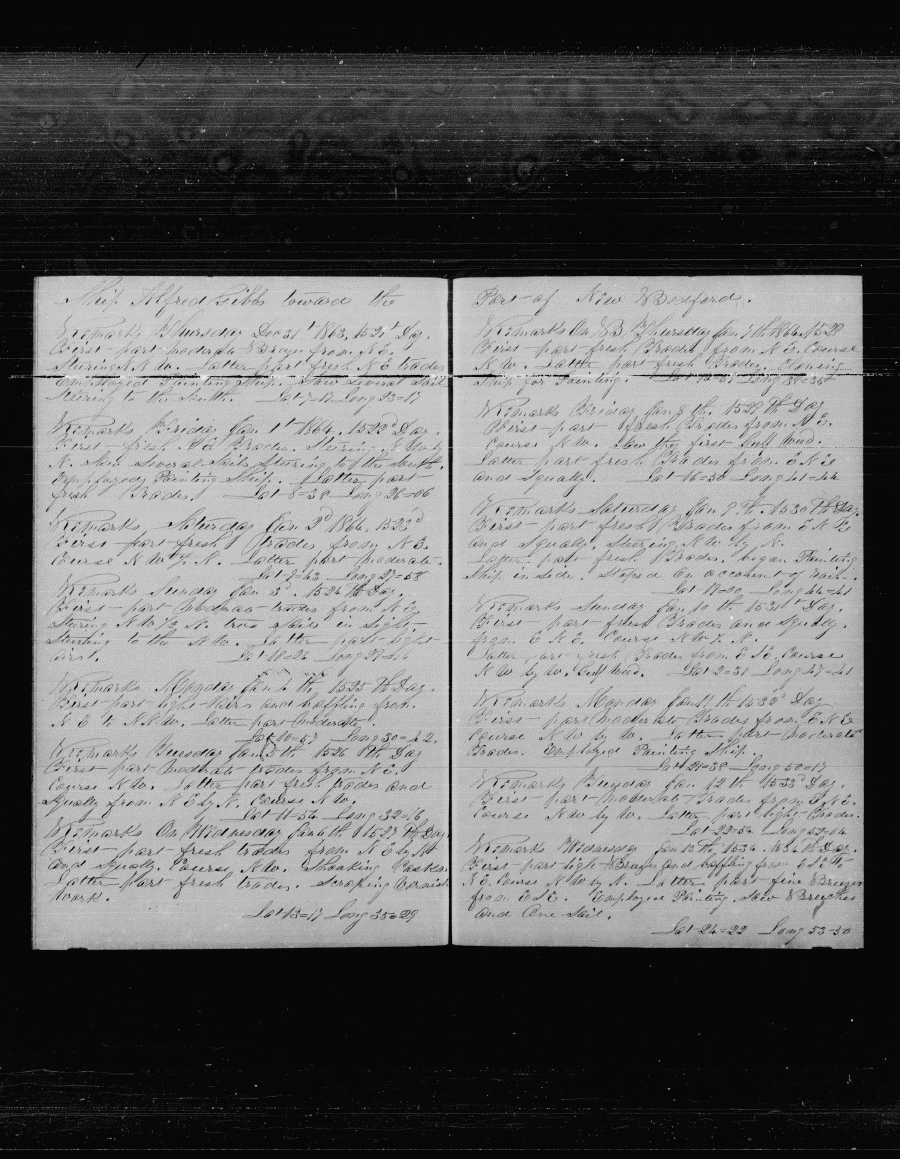 Ship Alfred Gibbs toward the
Remarks Thursday Dec 31st 1863. 1521st Day.
First part moderate Breeze from N E.
Steering N. N W. Latter part fresh N E trades
Employed Painting Ship. Saw Several Sail
Steering to the South. Lat 7=17 Long 25=17
Remarks Friday Jan 1st 1864. 1522d Day.
First fresh N E Trades. Steering N W by
N. Saw Several Sails Steering to the South.
Employed Painting Ship. Latter part
fresh Trades. Lat 8=38 Long 26=06
Remarks Saturday Jan 2d 1864. 1523d
First part fresh Trades from N E.
Course N W ½ N. Latter part moderate.
Lat 9=43 Long 27=58
Remarks Sunday Jan 3d. 1524th Day.
First part Modrate trades from N E
Steering N W ½ N. two Sails in Sight
Steering to the N W. Latter part light
airs. Lat 10=24 Long 29=16
Remarks Monday Jan 4th 1525th Day.
First part light Airs and baffling from
N E to N N W. Latter part moderate.
Lat 10=57 Long 30=42.
Remarks Tuesday Jan 5th 1526th Day
First part Modrate trades from N E.
Course N W. Latter part fresh trades and
Squally from N E by N. Course N W.
Lat 11=54 Long 32=16
Remarks On Wednesday Jan 6th 1527th Day.
First part fresh trades from N E by N
and Squally. Course N W. Shooking Casks.
Latter Part fresh trades. Scraping
work.
Lat 13=17 Long 35=29
Port of New Bedford.
Remarks On B Thursday Jan 7th 1864. 1528
First part fresh Trades from N E. Course
N W. Latter part fresh Trades. Cleaning
Ship for Painting. Lat 14=51 Long 38=35
Remarks Friday Jan 8th. 1529th Day
First part fresh Trades from N E.
Course N W. Saw the first Gulf Weed.
Latter part fresh Trades from E N E
and Squally. Lat 16=30 Long 41=44
Remarks Saturday Jan 9th. 1530th Day.
First part fresh Trades from E N E
and Squally. Steering N W by N.
Latter part fresh Trades. began Painting
Ship in Side. Stoped On account of rain.
Lat 19=00 Long 44=41
Remarks Sunday Jan 10th 1531st Day.
First part fresh Trades and Squally
from E N E Course N W ½ N.
Latter part fresh Trades from E N E. Course
N W by W. Gulf Weed. Long 47=41
Remarks Monday Jan 11th 1532d Day
First part Moderate Trades from E N E
Course N W by W. Latter part moderate
Trades. Employed Painting Ship.
Lat 21=38 Long 50=17
Remarks Tuesday Jan 12th 1533d Day.
First part moderate Trades from E N E.
Course N W by W. Latter part light Trades.
Lat 22=54 Long 52=04
Remarks Wednesday Jan 13th. 1534th Day.
First part light Breeze and baffling from E S E to
N E. Course N W by N. Latter part fine Breezes
from E S E. Employed Painting. Saw Breeches
and One Sail.
Lat 24=22 Long 53=50